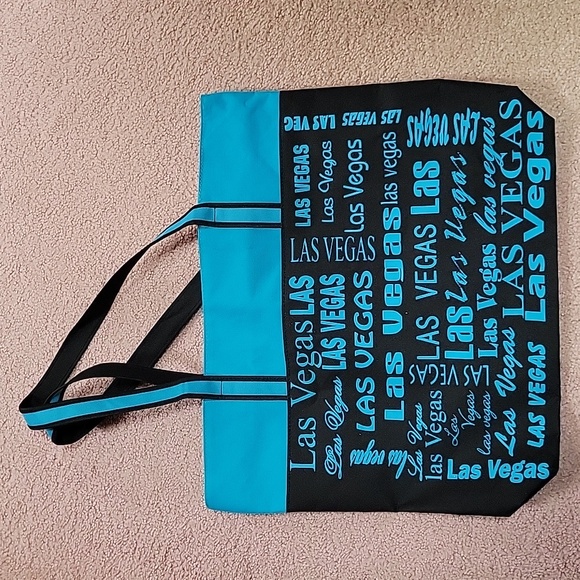 LAS VEGAS LAS VEG
LAS VEGAS
LAS VEGAS
LAS VEGAS
Las Vegas
Las Vegas
las vegas
Las
Las Vegas
las vegas
LAS VEGAS
Las Vegas
LAS VEGAS
LAS
LAS VEGAS
LAS VEGAS
Las Vegas
LAS VEGAS
Las
Las Vegas
LAS VEGAS
Las Vegas
Las Vegas
las vegas
las vegas
Las Vegas
las Vegas
Las Vegas
las vegas
Las Vegas
LAS VEGAS
Las Vegas